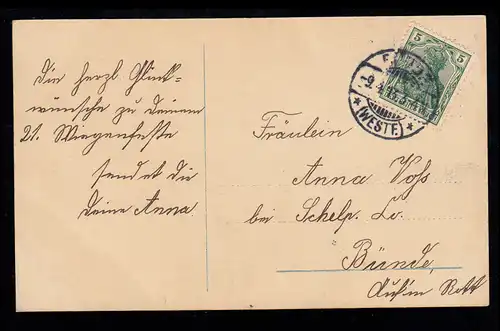 Die herzl. Glück=
wünsche zu Deinem
21. Wiegenfeste
sendet die
Deine Anna.
5 5
(WESTF.)
Fräulein
Anna Voß
bei Schelp. Lo.
Bünde,
Auf'm Rott